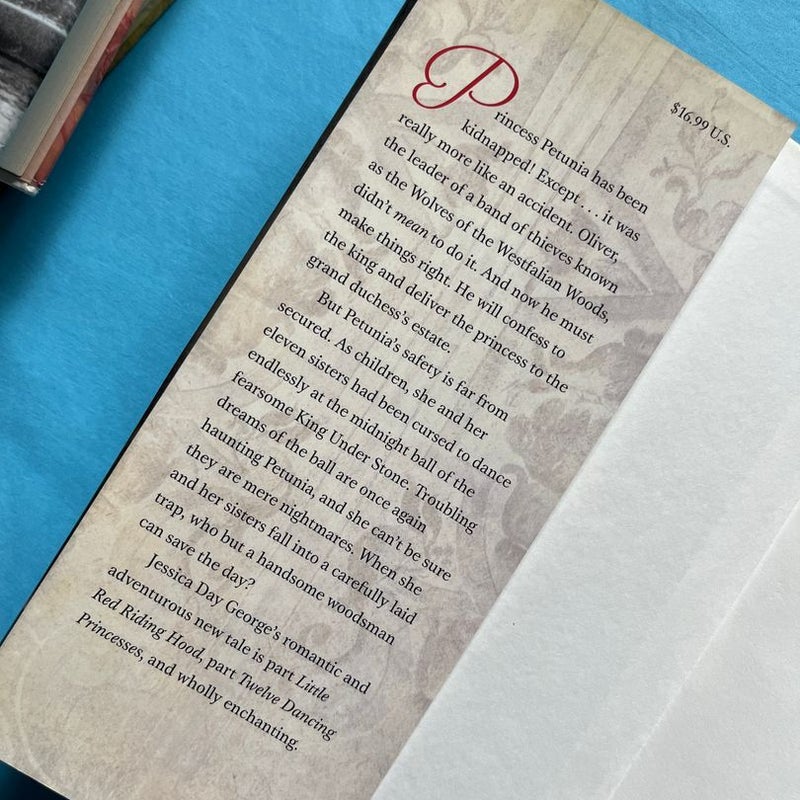 $16.99 U.S.
Princess Petunia has been
kidnapped! Except . . . it was
really more like an accident. Oliver,
the leader of a band of thieves known
as the Wolves of the Westfalian Woods,
didn't mean to do it. And now he must
make things right. He will confess to
the king and deliver the princess to the
grand duchess's estate.
But Petunia's safety is far from
secured. As children, she and her
eleven sisters had been cursed to dance
endlessly at the midnight ball of the
fearsome King Under Stone. Troubling
dreams of the ball are once again
haunting Petunia, and she can't be sure
they are mere nightmares. When she
and her sisters fall into a carefully laid
trap, who but a handsome woodsman
can save the day?
Jessica Day George's romantic and
adventurous new tale is part Little
Red Riding Hood, part Twelve Dancing
Princesses, and wholly enchanting.